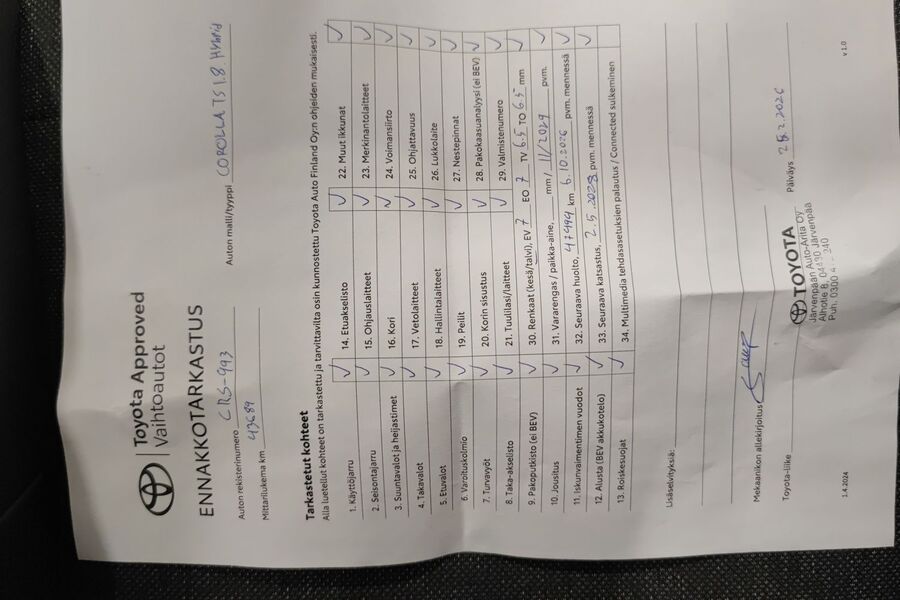 Toyota Approved
Vaihtoautot
ENNAKKOTARKASTUS
Auton rekisterinumero CRS-993 Auton malli/tyyppi COROLLA TS 1.8 Hybrid
Mittarilukema km 43689
Tarkastetut kohteet
Alla luetellut kohteet on tarkastettu ja tarvittavilta osin kunnostettu Toyota Auto Finland Oy:n ohjeiden mukaisesti.
1. Käyttöjarru
2. Seisontajarru
3. Suuntavalot ja heijastimet
4. Takavalot
5. Etuvalot
6. Varoituskolmio
7. Turvavyöt
8. Taka-akselisto
9. Pakoputkisto (ei BEV)
10. Jousitus
11. Iskunvaimentimien vuodot
12. Alusta (BEV akkukotelo)
13. Roiskesuojat
14. Etuakselisto
15. Ohjauslaitteet
16. Kori
17. Vetolaitteet
18. Hallintalaitteet
19. Peilit
20. Korin sisustus
21. Tuulilasi/laitteet
22. Muut ikkunat
23. Merkinantolaitteet
24. Voimansiirto
25. Ohjattavuus
26. Lukkolaite
27. Nestepinnat
28. Pakokaasuanalyysi (ei BEV)
29. Valmistenumero
30. Renkaat (kesä/talvi), EV 7 EO 7 TV 6.5 TO 6.5 mm
31. Vararengas / paikka-aine, mm / 11/2029 pvm.
32. Seuraava huolto, 47494 km 6.10.2026 pvm. mennessä
33. Seuraava katsastus, 2.5.2028 pvm. mennessä
34. Multimedia tehdasasetuksien palautus / Connected sulkeminen
Lisäselvityksiä:
Mekaanikon allekirjoitus
Toyota-liike
TOYOTA
Järvenpään Auto-Arita Oy
Alhotie 8, 04430 Järvenpää
Puh. 0300
Päiväys 28.2.2026
1.4.2024 v 1.0